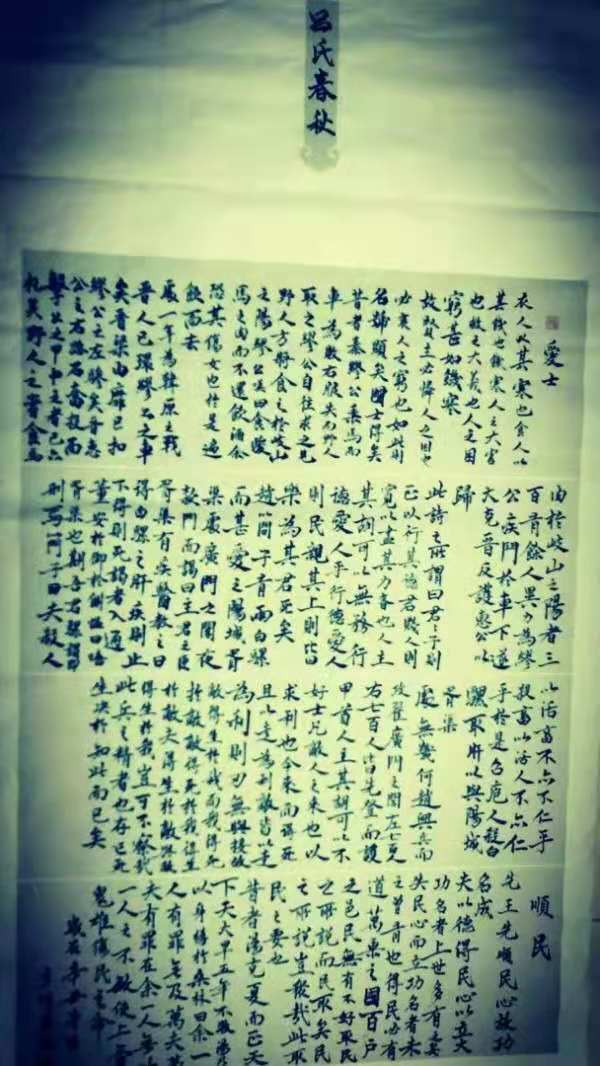 吕氏春秋
愛士
衣人以其寒也食人以
其饑也饑寒人之大害
也救之大義也人之困
窮甚如饑寒
故賢主必憐人之困也
必哀人之窮也如此則
名號顯矣國士得矣
昔者秦繆公乘馬而
車為敗右服失而野人
取之繆公自往求之見
野人方將食之於岐山
之陽繆公笑曰食駿
馬之肉而不還飲酒余
恐其傷女也於是遍
飲而去
處一年為韓原之戰
晉人已環繆公之車
矣晉梁由靡已扣
繆公之左驂矣晉惠
公之右路石奮投而
擊公之甲中之者已六
札矣野人之嘗食馬
肉於岐山之陽者三
百有餘人畢力為繆
公疾鬥於車下遂
大克晉反獲惠公以
歸
此詩之所謂曰君君子則
正以行其德君賤人則
寬以盡其力者也人主
其胡可以無務行
德愛人乎行德愛人
則民親其上則皆
樂為其君死矣
趙簡子有兩白騾
而甚愛之陽城胥
渠處廣門之閭夜
款門而謁曰主君之臣
胥渠有疾醫教之曰
得白騾之肝疾則止
不得則死謁者入通
董安於御於側慍曰嘻
胥渠也期吾君騾請即
刑焉簡子曰夫殺人
以活畜不亦不仁乎
殺畜以活人不亦仁
乎於是召庖人殺白
騾取肝以與陽城
胥渠
處無幾何趙興兵而
攻翟廣門之閭左七百
右七百人皆先登而獲
甲首人主其胡可以不
好士凡敵人之來也以
求利也今來而得死
且以走為利敵皆以走
為利則刃無與接故
敵得生於我則我得死
於敵敵得死於我則我得生
於敵夫得生於敵與敵
得生於我豈可不察哉
此兵之精者也存亡死
生決於知此而已矣
順民
先王先順民心故功
名成
夫以德得民心以立大
功名者上世多有之矣
失民心而立功名者未
之曾有也得民必有
道萬乘之國百戶
之邑民無有不好取民
之所說而民取矣民
之所說豈眾哉此取
民之要也
昔者湯克夏而正天
下天大旱五年不收湯乃
以身禱於桑林曰余一
人有罪無及萬夫萬
夫有罪在余一人無以
一人之不敏使上帝
鬼神傷民之命
歲在辛丑